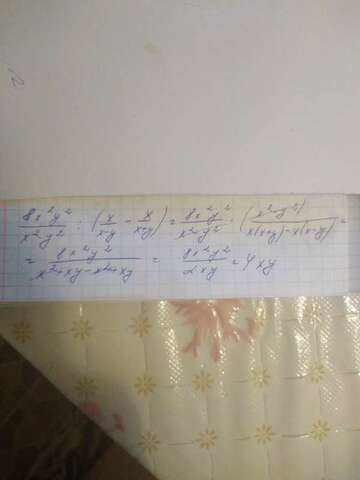 \frac{8x^2y^2}{x^2-y^2} : \left(\frac{x}{x-y} - \frac{x}{x+y}\right) = \frac{8x^2y^2}{x^2-y^2} \cdot \left(\frac{x^2-y^2}{x(x+y)-x(x-y)}\right) =
= \frac{8x^2y^2}{x^2+xy-x^2+xy} = \frac{8x^2y^2}{2xy} = 4xy